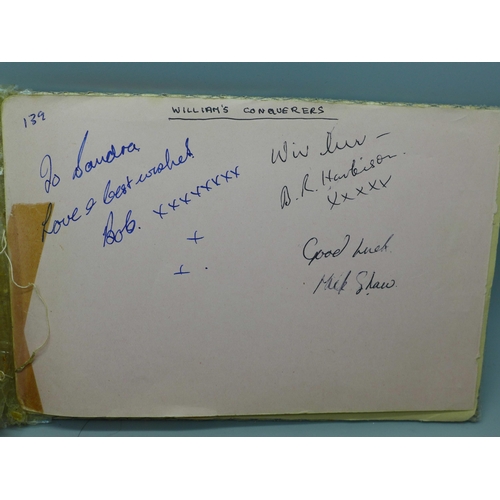 139
WILLIAM'S CONQUERERS
To Sandra
Love & best wishes
Bob. xxxxxxxx
Wiv luv –
B. R. Harbison.
xxxxx
Good Luck.
Mick Shaw.